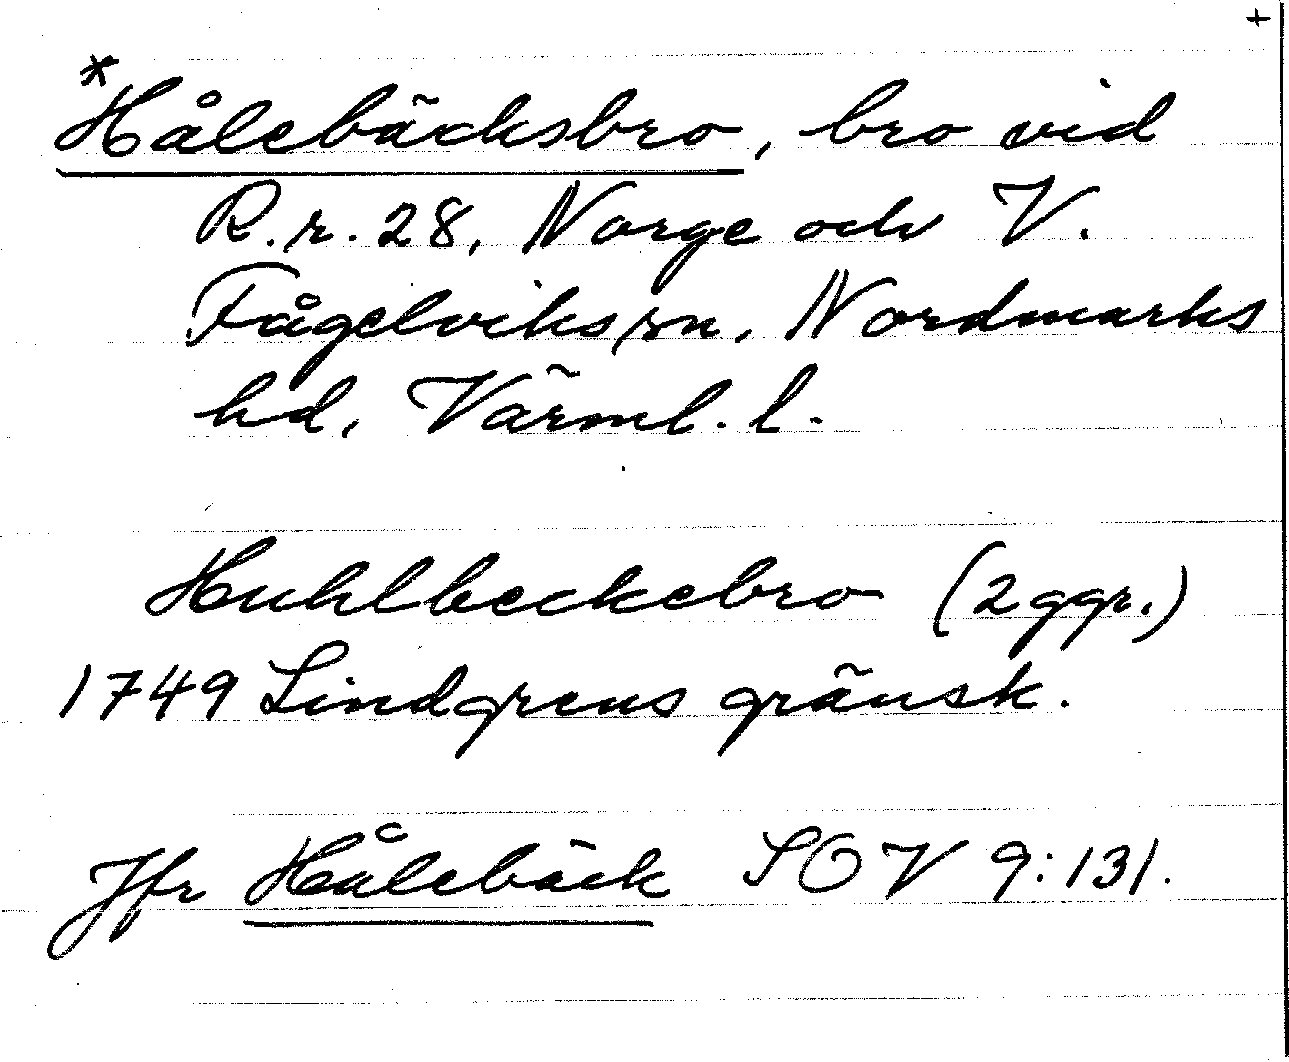 +
*Hålebäcksbro, bro vid
R.r. 28, Norge och V.
Fågelviks sn, Nordmarks
hd, Värml. l.
Huhlbeckebro (2 ggr.)
1749 Lindgrens gränsk.
Jfr Hålebäck SOV 9:131.